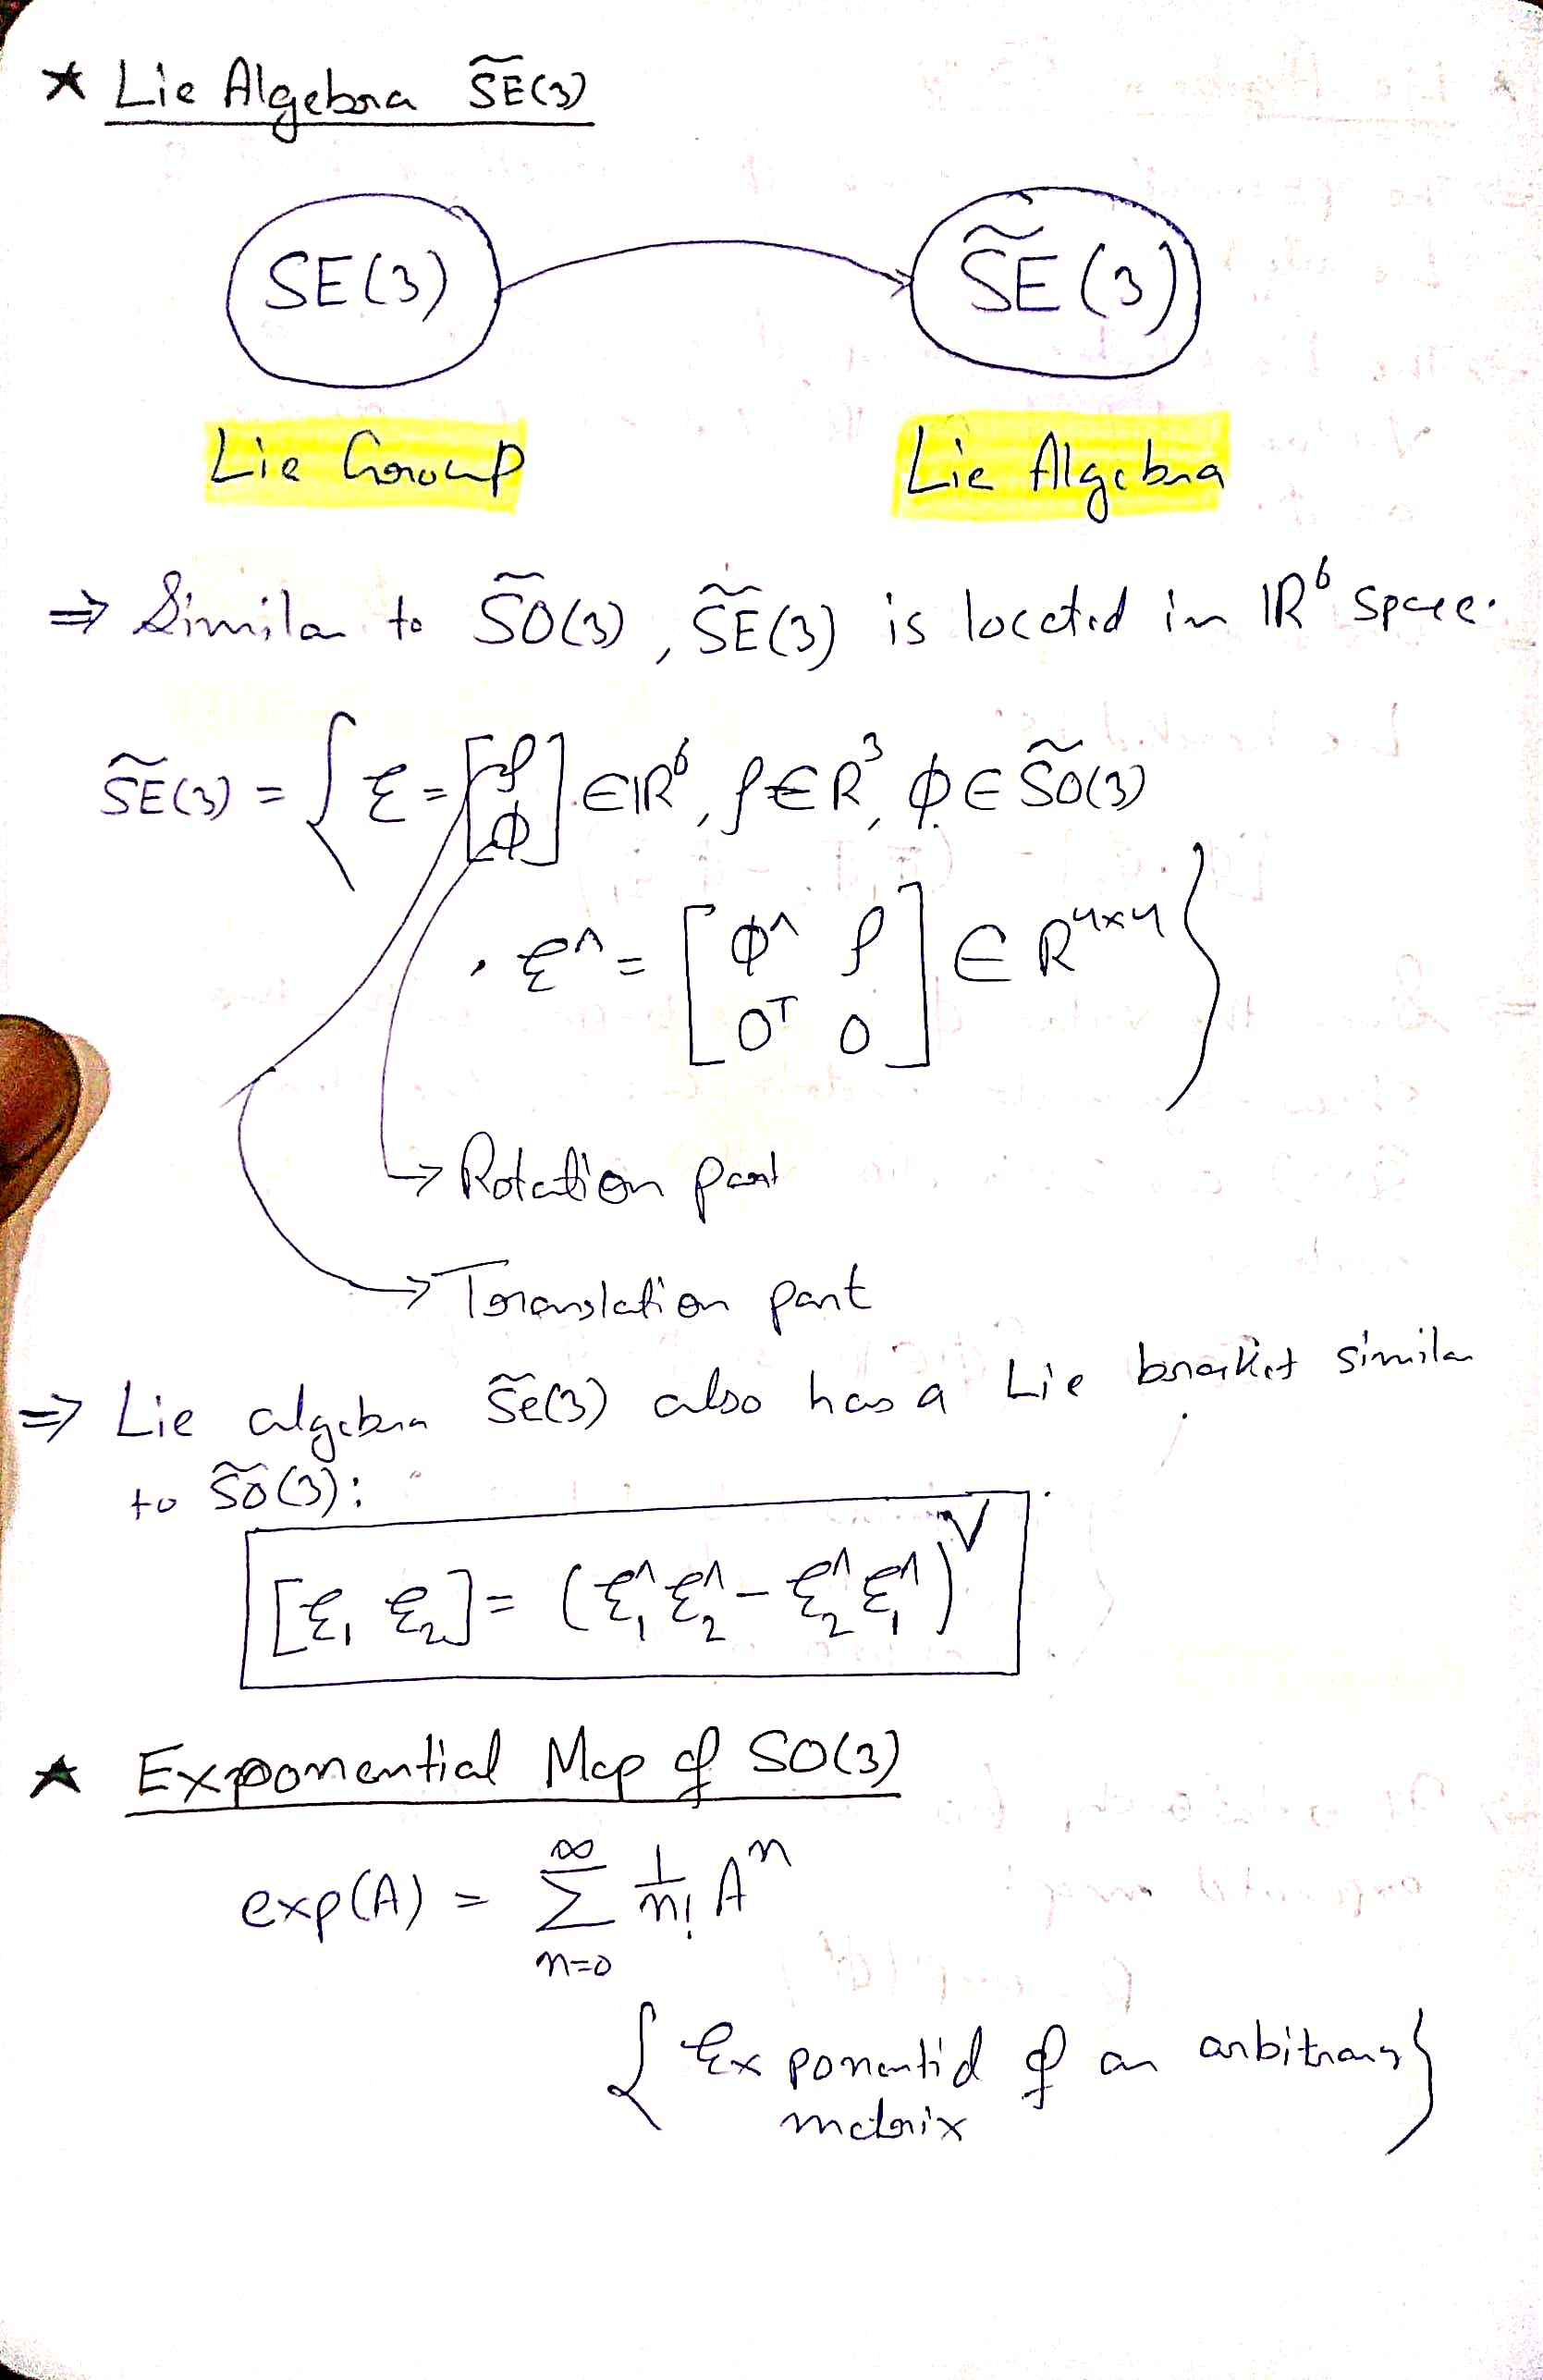 ★ Lie Algebra S̃E(3)
SE(3) S̃E(3)
Lie Group Lie Algebra
⇒ Similar to S̃O(3), S̃E(3) is located in ℝ⁶ space.
S̃E(3) = { ξ = [ρ ϕ] ∈ ℝ⁶, ρ ∈ R³, ϕ ∈ S̃O(3)
, ξ^ = [ϕ^ ρ
0ᵀ 0] ∈ R⁴ˣ⁴ }
→ Rotation part
→ Translation part
⇒ Lie algebra S̃e(3) also has a Lie bracket similar
to S̃O(3):
[ξ₁ ξ₂] = (ξ₁^ ξ₂^ - ξ₂^ ξ₁^)ⱽ
★ Exponential Map of SO(3)
exp(A) = ∞ Σ n=0 1/n! Aⁿ
{ Exponential of an arbitrary
matrix }